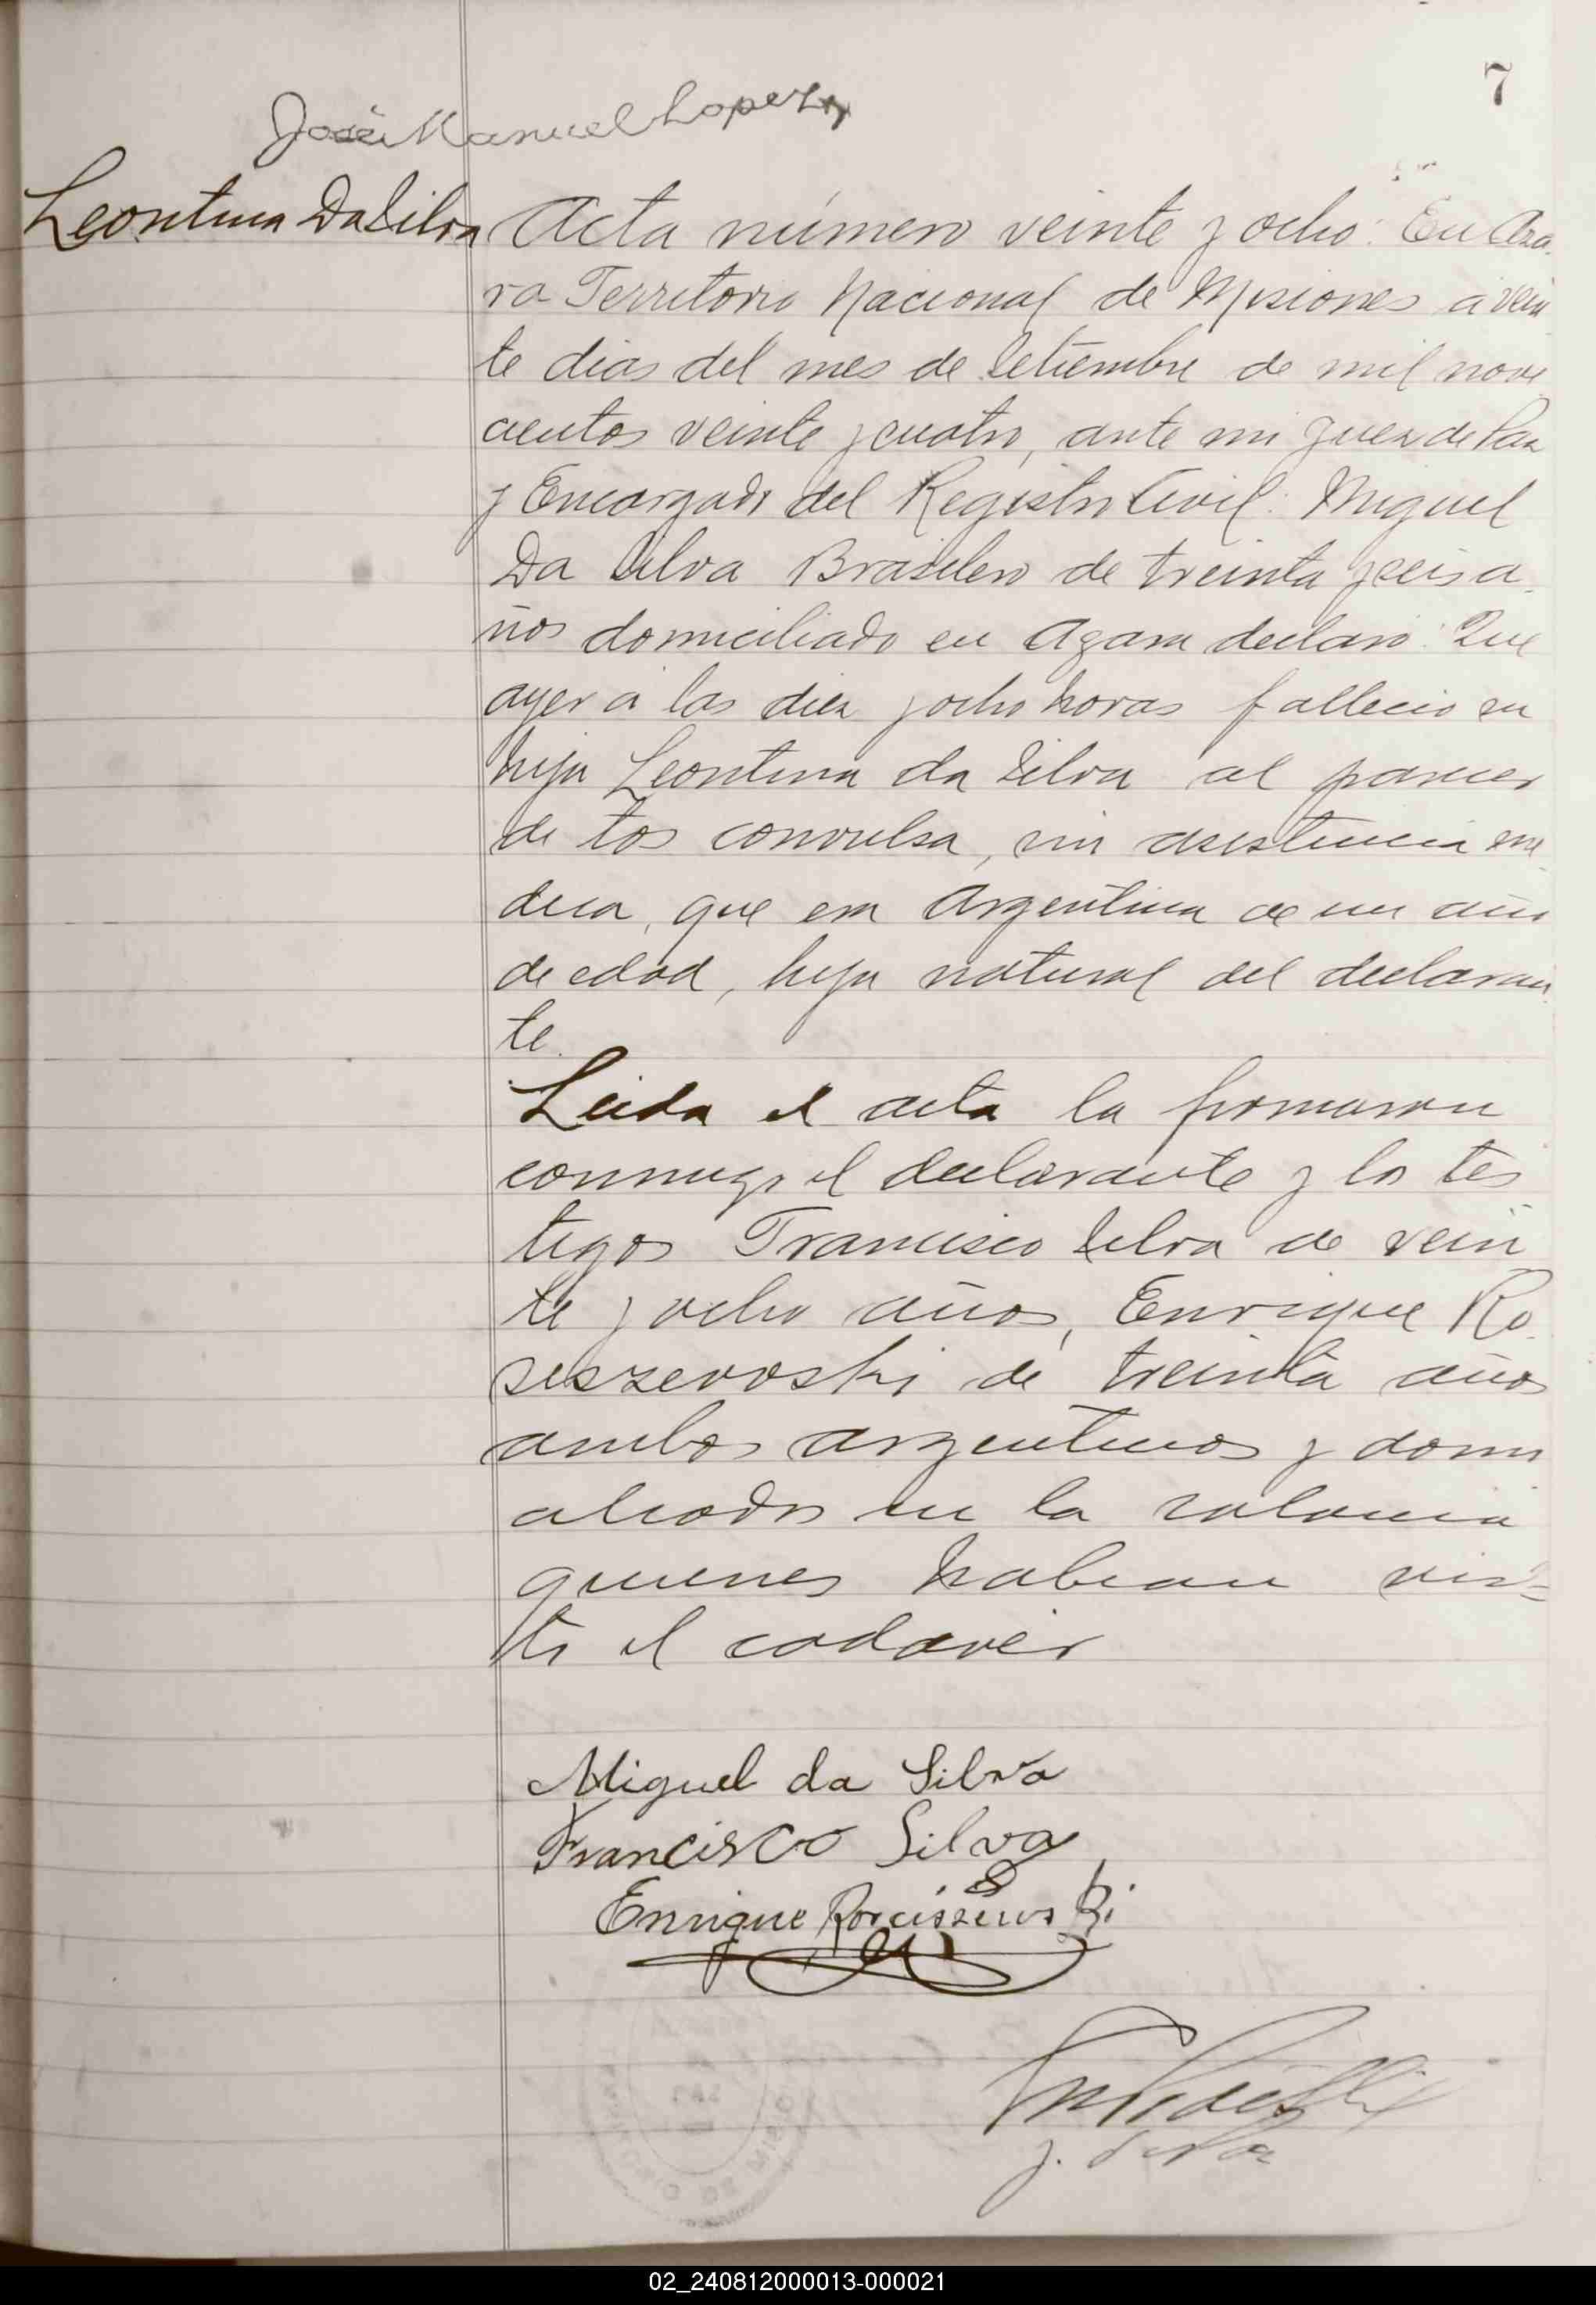 7
José Manuel Lopez
Leontina Da Silva
Acta número veinte y ocho: En Aza
ra Territorio Nacional de Misiones a vein
te dias del mes de Setiembre de mil nove
cientos veinte y cuatro, ante mi Juez de Paz
y Encargado del Registro Civil: Miguel
Da Silva Brasilero de treinta y seis a
ños domiciliado en Azara declaró: Que
ayer á las diez y ocho horas fallecio su
hija Leontina da Silva al parecer
de tos convulsa, sin asistencia me
dica, que era Argentina de un año
de edad, hija natural del declaran
te.
Leida el acta la firmaron
conmigo el declarante y los tes
tigos Francisco Silva de vein
te y ocho años, Enrique Ro
seszevoski de treinta años
ambos argentinos y domi
ciliados en la colonia
quienes habian vis=
to el cadaver
Miguel da Silva
Francisco Silva
Enrique
J. de Paz
02_240812000013-000021